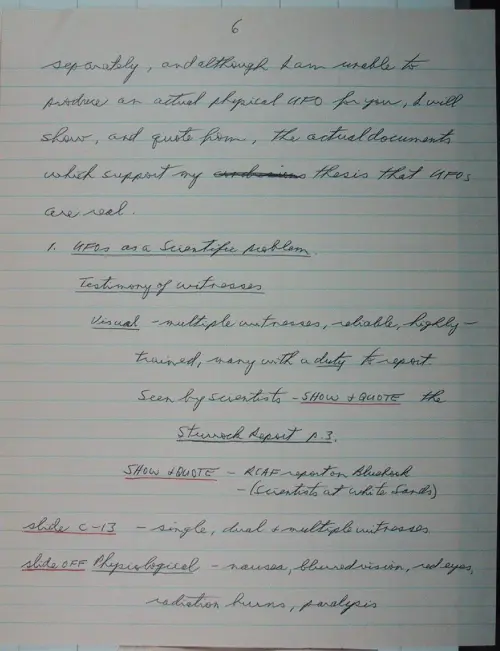 6
separately, and although I am unable to
produce an actual physical UFO for you, I will
show, and quote from, the actual documents
which support my conclusions thesis that UFOs
are real.
1. UFOs as a Scientific problem.
Testimony of witnesses
Visual - multiple witnesses, reliable, highly-
trained, many with a duty to report.
Seen by scientists - SHOW & QUOTE the
Sturrock Report p.3.
SHOW & QUOTE - RCAF report on Bluebook
- (Scientists at White Sands)
slide C-13 - single, dual & multiple witnesses
slide OFF Physiological - nausea, blurred vision, red eyes,
radiation burns, paralysis